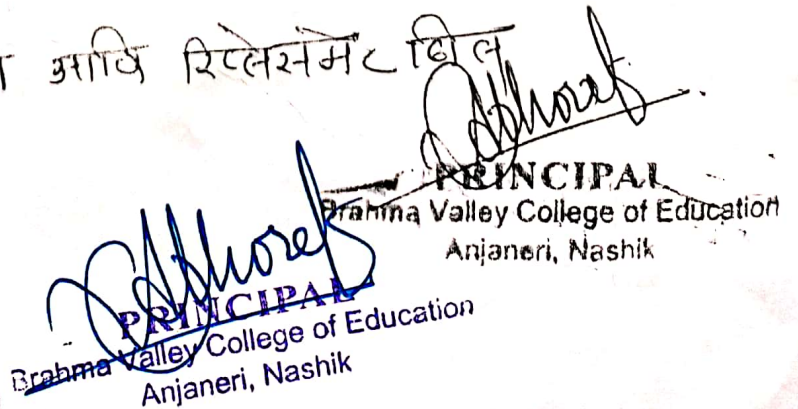 आणि रिप्लेसमेंट बिल
PRINCIPAL
Brahma Valley College of Education
Anjaneri, Nashik
PRINCIPAL
Brahma Valley College of Education
Anjaneri, Nashik